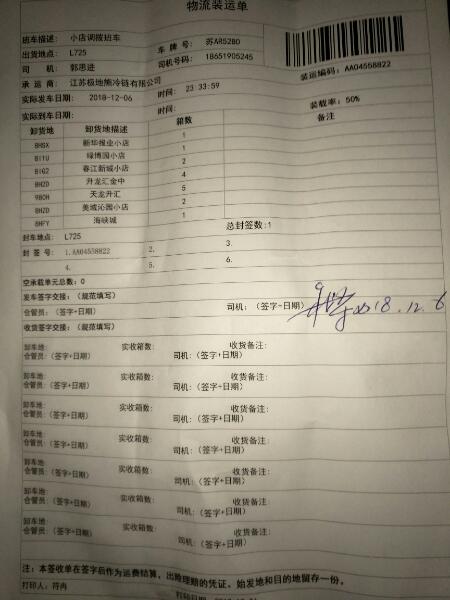 物流装运单
班车描述: 小店调拨班车
出货地点: L725 车 牌 号: 苏AR52B0
司 机: 郭思进 司机号码: 18651905245
承 运 商: 江苏极地熊冷链有限公司 装运编码: AA04558822
实际发车日期: 2018-12-06 时间: 23 33:59
实际到车日期: 时间: 装载率: 50%
卸货地 卸货地描述 箱数 备注
8HSX 新华报业小店 1
811U 绿博园小店 1
81G2 春江新城小店 2
8H2D 升龙汇金中 4
980H 天龙升汇 5
8HZD 美域沁园小店 2
8HFY 海峡城 1
封车地点: L725 总封签数:1
封 签 号: 1.AA04558822 2. 3.
4. 5. 6.
空承载单元总数: 0
发车签字交接: (规范填写)
仓管员: (签字+日期) 司机: (签字+日期) 2018.12.6
收货签字交接: (规范填写)
卸车地: 实收箱数: 收货备注:
仓管员: (签字+日期) 司机: (签字+日期)
卸车地: 实收箱数: 收货备注:
仓管员: (签字+日期) 司机: (签字+日期)
卸车地: 实收箱数: 收货备注:
仓管员: (签字+日期) 司机: (签字+日期)
卸车地: 实收箱数: 收货备注:
仓管员: (签字+日期) 司机: (签字+日期)
卸车地: 实收箱数: 收货备注:
仓管员: (签字+日期) 司机: (签字+日期)
卸车地: 实收箱数: 收货备注:
仓管员: (签字+日期) 司机: (签字+日期)
注: 本签收单在签字后作为运费结算, 出险理赔的凭证、始发地和目的地留存一份。
打印人: 符冉